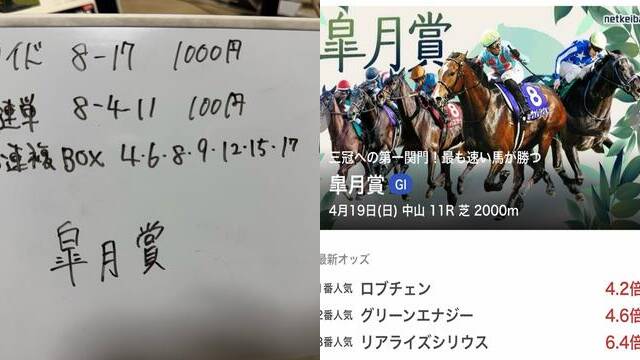 イド 8-17 1000円
連単 8-4-11 100円
連複BOX 4・6・8・9・12・15・17
皐月賞
netkeiba
皐月賞
8
三冠への第一関門！最も速い馬が勝つ
皐月賞 GI
4月19日(日) 中山 11R 芝 2000m
最新オッズ
1番人気 ロブチェン 4.2倍
2番人気 グリーンエナジー 4.6倍
3番人気 リアライズシリウス 6.4倍